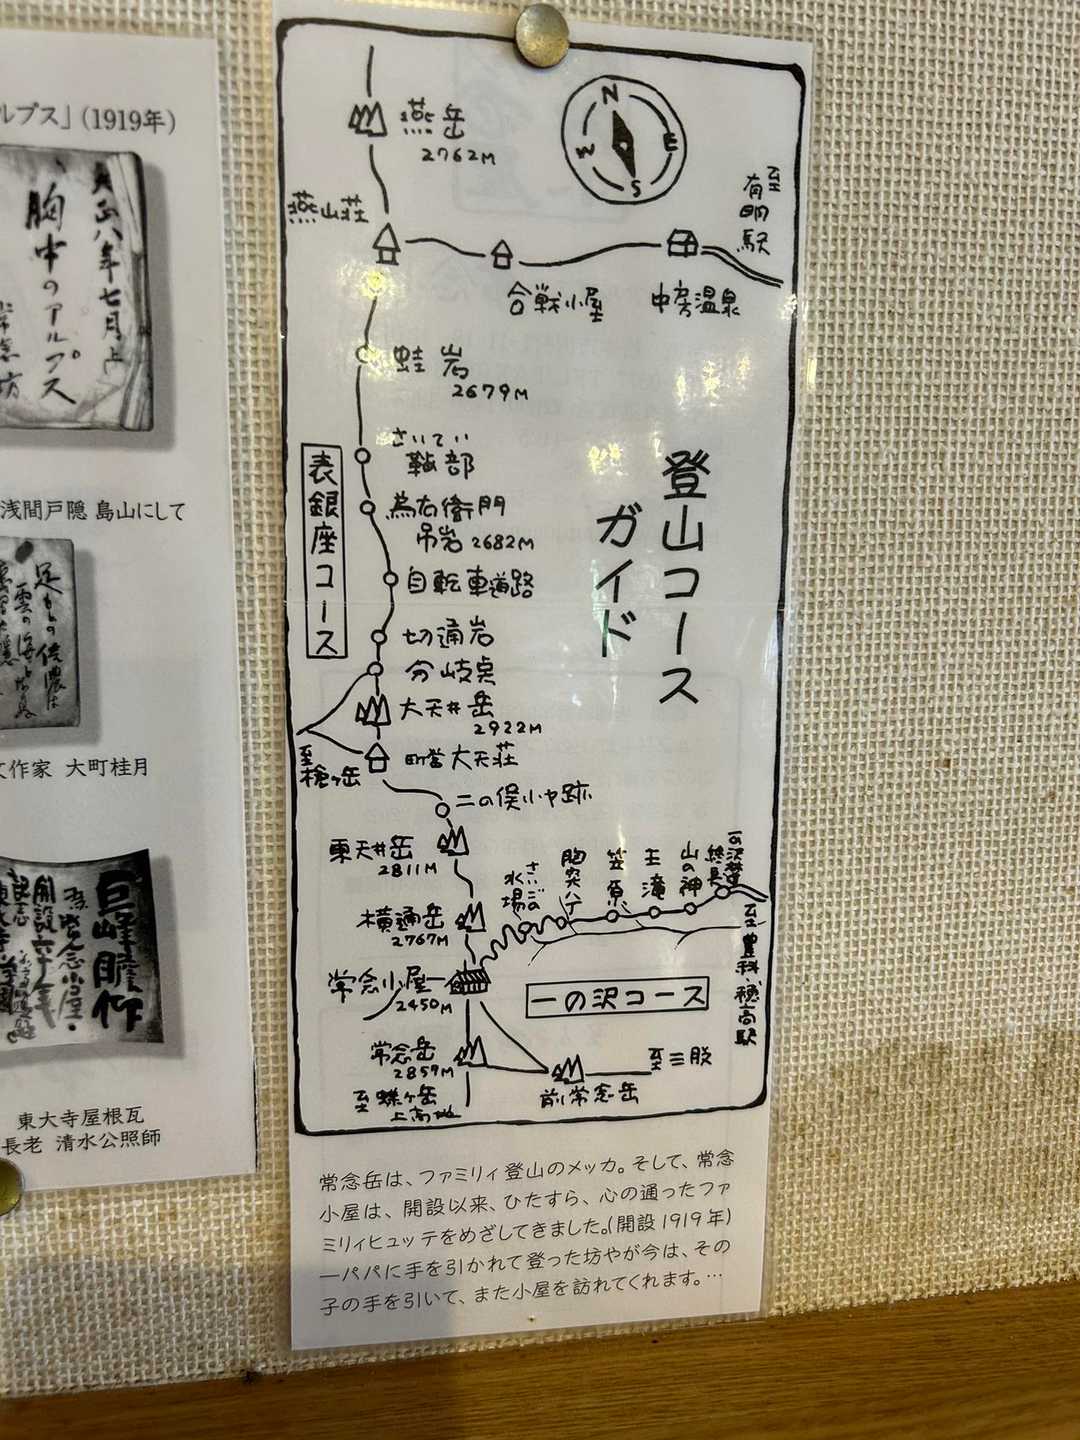 ルプス」(1919年)
大正八年七月上
胸中のアルプス
常念坊
浅間戸隠 島山にして
作家 大町桂月
巨峰瞻仰
開設六十年
東大寺屋根瓦
長老 清水公照師
登山コース
ガイド
N
E
S
W
燕岳
2762M
燕山荘
合戦小屋
中房温泉
至有明駅
蛙岩
2679M
さいてい
鞍部
為右衛門
吊岩2682M
自転車道路
切通岩
分岐点
表銀座コース
大天井岳
2922M
至槍ヶ岳
町営大天荘
二の俣小ヤ跡
東天井岳
2811M
横通岳
2767M
常念小屋
2450M
常念岳
2859M
至蝶ヶ岳
上高地
前常念岳
至三股
さいごの水場
胸突八丁
笠原
王滝
山の神
終点
至豊科・穂高駅
一の沢コース
常念岳は、ファミリィ登山のメッカ。そして、常念
小屋は、開設以来、ひたすら、心の通ったファ
ミリィヒュッテをめざしてきました。(開設1919年)
―パパに手を引かれて登った坊やが今は、その
子の手を引いて、また小屋を訪れてくれます。…